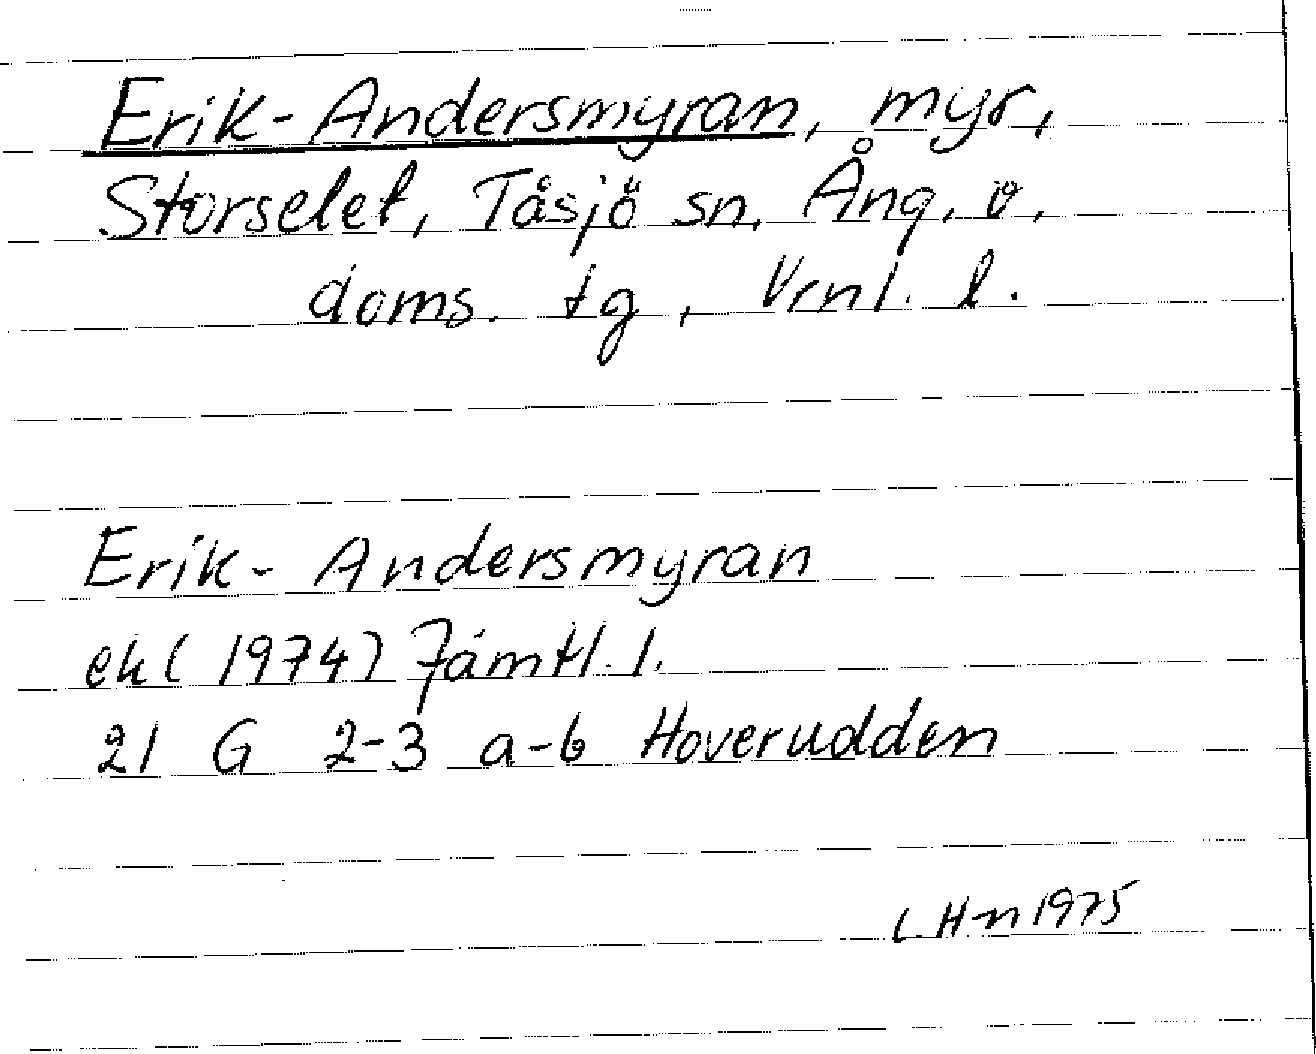 Erik-Andersmyran, myr,
Storselet, Tåsjö sn, Ång. v.
doms. tg, Vrnl. l.
Erik-Andersmyran
ek (1974) Jämtl. l.
21 G 2-3 a-b Hoverudden
L H-n 1975